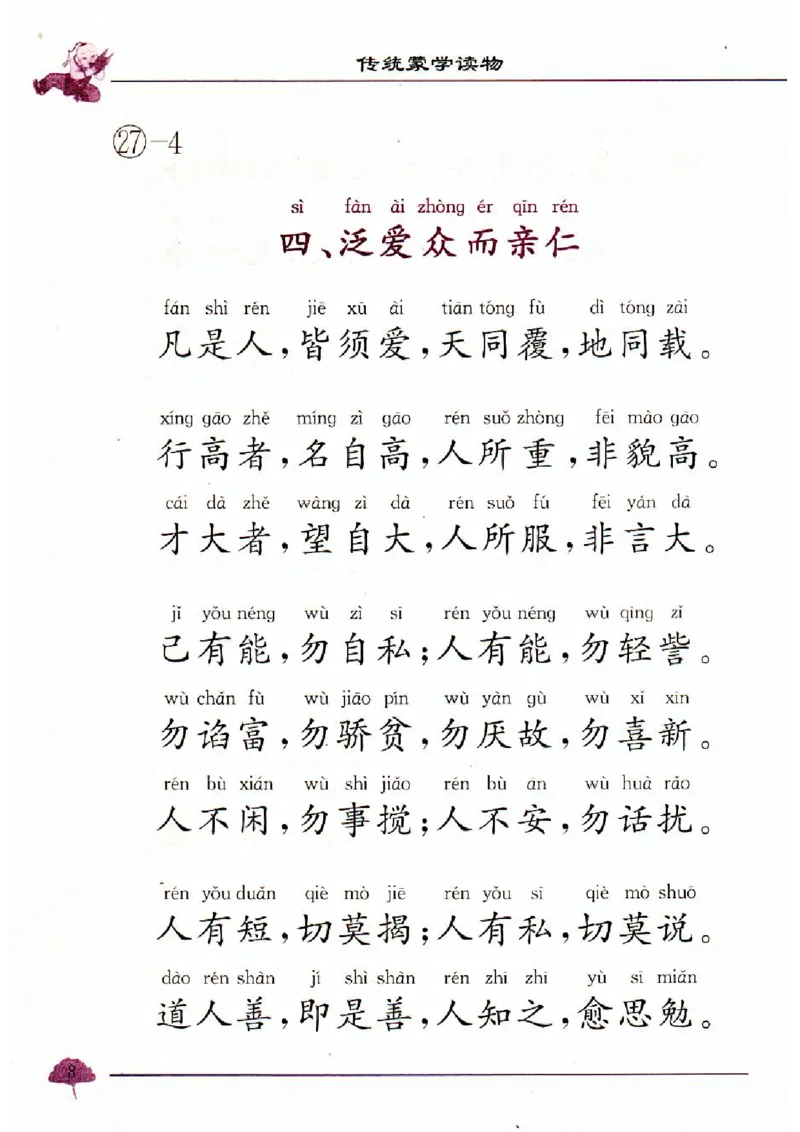 传统蒙学读物
㉗-4
sì fàn ài zhòng ér qīn rén
四、泛爱众而亲仁
fán shì rén jiē xū ài tiān tóng fù dì tóng zài
凡是人，皆须爱，天同覆，地同载。
xíng gāo zhě míng zì gāo rén suǒ zhòng fēi mào gāo
行高者，名自高，人所重，非貌高。
cái dà zhě wàng zì dà rén suǒ fú fēi yán dà
才大者，望自大，人所服，非言大。
jǐ yǒu néng wù zì sī rén yǒu néng wù qīng zǐ
己有能，勿自私；人有能，勿轻訾。
wù chǎn fù wù jiāo pín wù yàn gù wù xǐ xīn
勿谄富，勿骄贫，勿厌故，勿喜新。
rén bù xián wù shì jiǎo rén bù ān wù huà rǎo
人不闲，勿事搅；人不安，勿话扰。
rén yǒu duǎn qiè mò jiē rén yǒu sī qiè mò shuō
人有短，切莫揭；人有私，切莫说。
dào rén shàn jí shì shàn rén zhī zhī yù sī miǎn
道人善，即是善，人知之，愈思勉。
8